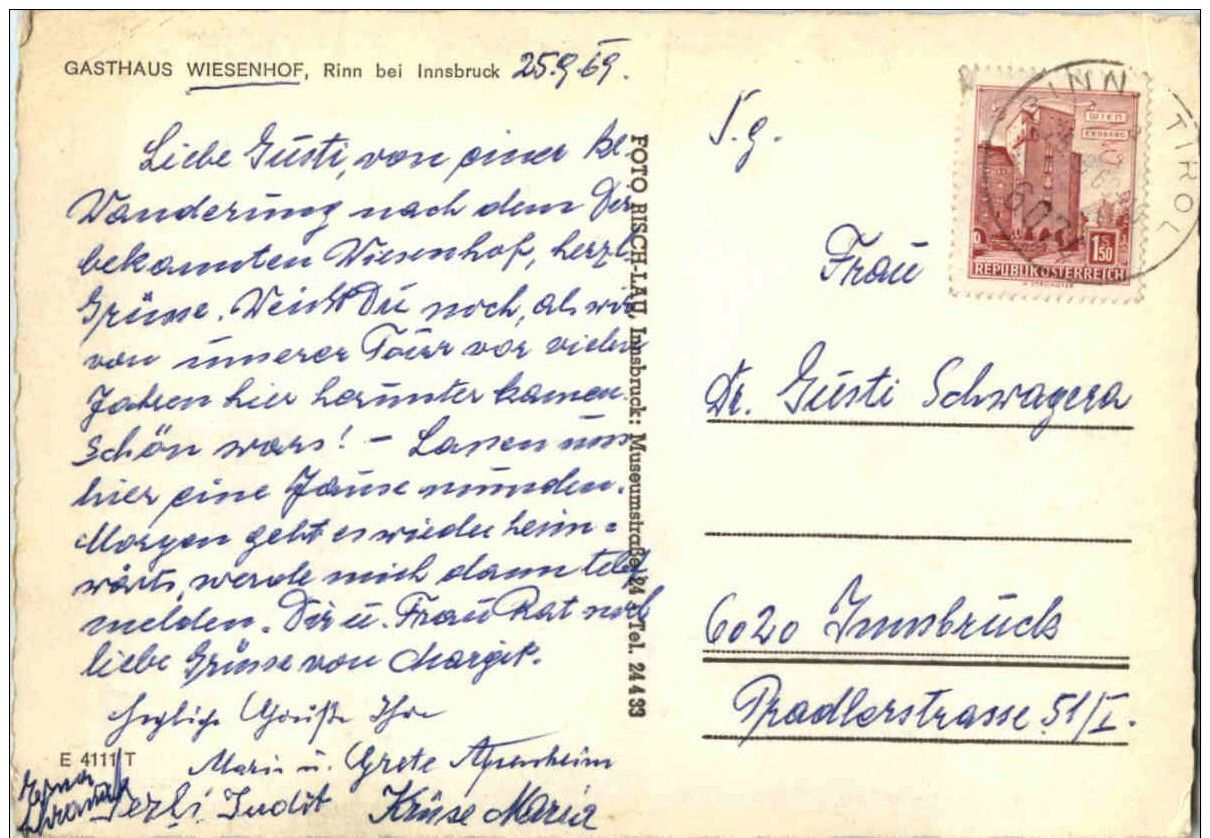 GASTHAUS WIESENHOF, Rinn bei Innsbruck 25.9.69.
Liebe Gusti, von einer kl.
Wanderung nach dem Dir
bekannten Wiesenhof, herzl.
Grüsse. Weisst Du noch, als wir
von unserer Tour vor vielen
Jahren hier herunter kamen.
Schön wars! – Lassen uns
hier eine Jause munden.
Morgen geht es wieder heim=
wärts, werde mich dann telef.
melden. Dir u. Frau Rat noch
liebe Grüsse von Margit.
Herzliche Grüße Ihre
Maria u. Grete
E 4111/T
Judit Kruse Maria
FOTO RISCH-LAU, Innsbruck: Museumstraße 24 • Tel. 24 4 33
S. g.
Frau
Dr. Gusti Schwagera
6020 Innsbruck
Pradlerstrasse 51/I.
RINN TIROL
6074
WIEN
ERDBERG
S 1.50
REPUBLIK ÖSTERREICH